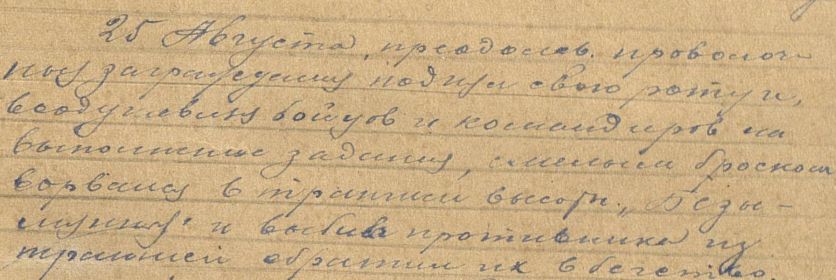 25 Августа, преодолев. проволоч-
ные заграждения поднял свою роту и,
воодушевляя бойцов и командиров на
выполнение задания, смелым броском
ворвался в траншеи высоты „Безы-
мянная" и выбив противника из
траншей обратил их в бегство.